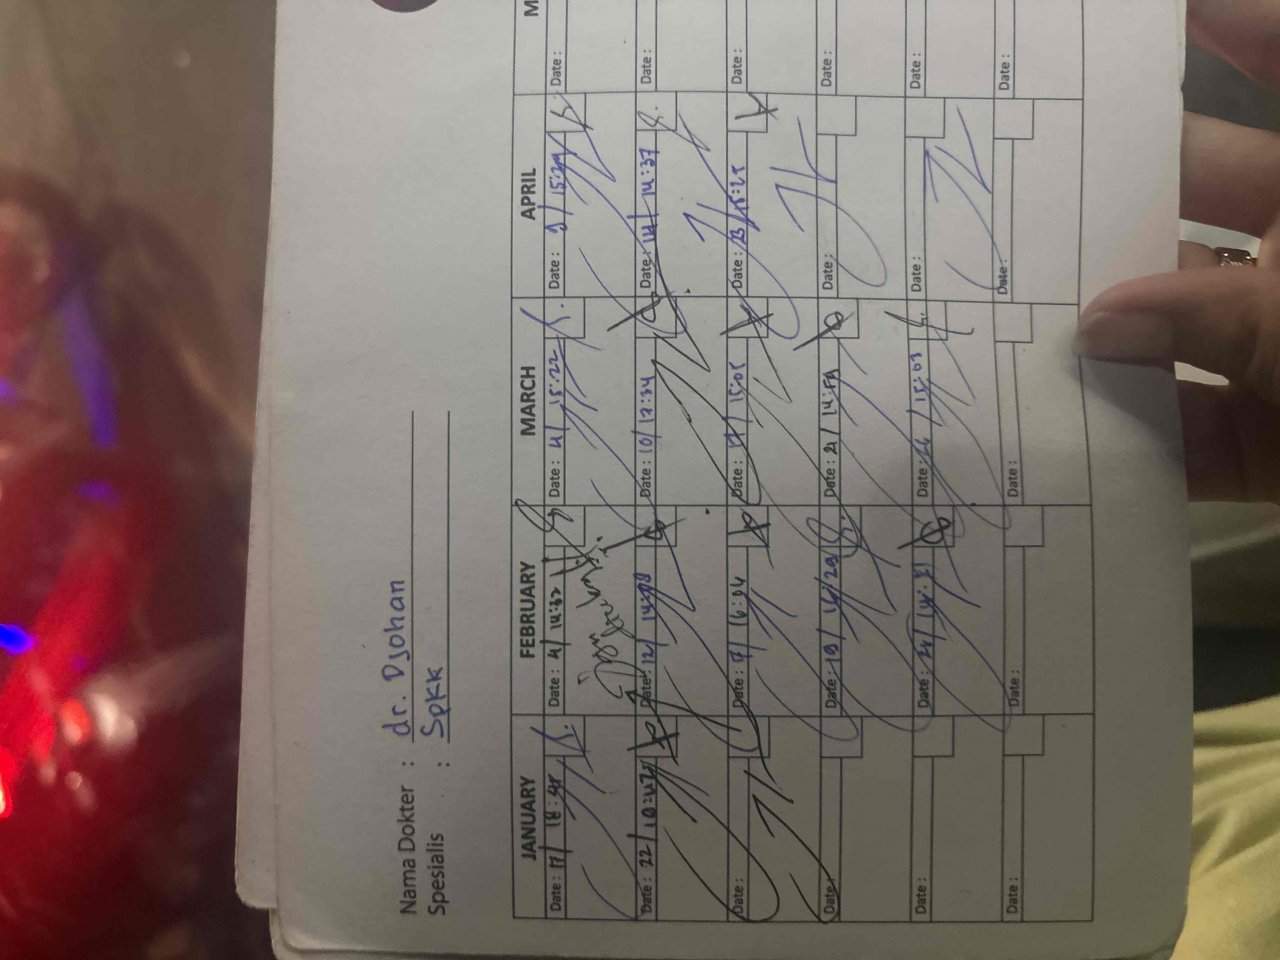 Nama Dokter : dr. Djohan
Spesialis : SpKK
JANUARY FEBRUARY MARCH APRIL M
Date : 17/ 18:45 Date : 4/ 14:32 Date : 4/ 15:22 Date : 2/ 15:29 Date :
Date : 22/ Date : 12/ 14:08 Date : 10/ 17:34 Date : 14/ 14:37 Date :
Date : Date : 7/ 16:04 Date : 17/ 15:05 Date : 23/ 15:25 Date :
Date : Date : 19/ 14:29 Date : 21/ Date : Date :
Date : Date : 24/ 14:31 Date : 26/ 15:03 Date : Date :
Date : Date : Date : Date : Date :